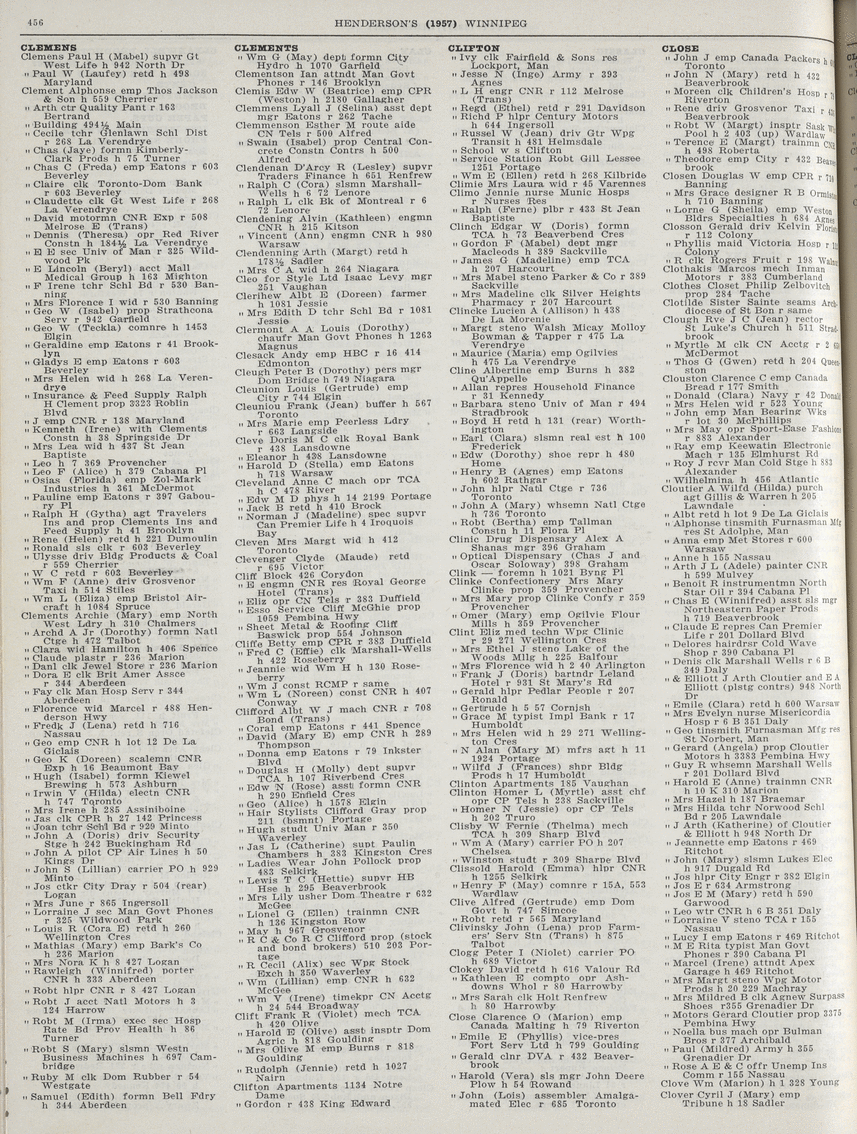 456
HENDERSON'S (1957) WINNIPEG
CLEMENS
Clemens Paul H (Mabel) supvr Gt
West Life h 942 North Dr
" Paul W (Laufey) retd h 498
Maryland
Clement Alphonse emp Thos Jackson
& Son h 559 Cherrier
" Arth ctr Quality Pant r 163
Bertrand
" Building 494½ Main
" Cecile tchr Glenlawn Schl Dist
r 268 La Verendrye
" Chas (Jaye) formn Kimberly-
Clark Prods h 75 Turner
" Chas C (Freda) emp Eatons r 603
Beverley
" Claire clk Toronto-Dom Bank
r 603 Beverley
" Claudette clk Gt West Life r 268
La Verendrye
" David motormn CNR Exp r 508
Melrose E (Trans)
" Dennis (Theresa) opr Red River
Constn h 184½ La Verendrye
" E E sec Univ of Man r 325 Wild-
wood Pk
" E Lincoln (Beryl) acct Mall
Medical Group h 163 Mighton
" F Irene tchr Schl Bd r 530 Ban-
ning
" Mrs Florence I wid r 530 Banning
" Geo W (Isabel) prop Strathcona
Serv r 942 Garfield
" Geo W (Teckla) comnre h 1453
Elgin
" Geraldine emp Eatons r 41 Brook-
lyn
" Gladys E emp Eatons r 603
Beverley
" Mrs Helen wid h 268 La Veren-
drye
" Insurance & Feed Supply Ralph
H Clement prop 3323 Roblin
Blvd
" J emp CNR r 138 Maryland
" Kenneth (Irene) with Clements
Constn h 38 Springside Dr
" Mrs Lea wid h 437 St Jean
Baptiste
" Leo h 7 369 Provencher
" Leo F (Alice) h 379 Cabana Pl
" Osias (Florida) emp Zol-Mark
Industries h 361 McDermot
" Pauline emp Eatons r 397 Gabou-
ry Pl
" Ralph H (Gytha) agt Travelers
Ins and prop Clements Ins and
Feed Supply h 41 Brooklyn
" Rene (Helen) retd h 221 Dumoulin
" Ronald sls clk r 603 Beverley
" Ulysse driv Bldg Products & Coal
r 559 Cherrier
" W C retd r 603 Beverley
" Wm F (Anne) driv Grosvenor
Taxi h 514 Stiles
" Wm L (Eliza) emp Bristol Air-
craft h 1084 Spruce
Clements Archie (Mary) emp North
West Ldry h 310 Chalmers
" Archd A Jr (Dorothy) formn Natl
Ctge h 472 Talbot
" Clara wid Hamilton h 406 Spence
" Claude plastr r 236 Marion
" Danl clk Jewel Store r 236 Marion
" Dora E clk Brit Amer Assce
r 344 Aberdeen
" Fay clk Man Hosp Serv r 344
Aberdeen
" Florence wid Marcel r 488 Hen-
derson Hwy
" Fredk J (Lena) retd h 716
Nassau
" Geo emp CNR h lot 12 De La
Giclais
" Geo K (Doreen) scalemn CNR
Exp h 16 Beaumont Bay
" Hugh (Isabel) formn Kiewel
Brewing h 573 Ashburn
" Irwin V (Hilda) electn CNR
h 747 Toronto
" Mrs Irene h 285 Assiniboine
" Jas clk CPR h 27 142 Princess
" Joan tchr Schl Bd r 929 Minto
" John A (Doris) driv Security
Stge h 242 Buckingham Rd
" John A pilot CP Air Lines h 50
Kings Dr
" John S (Lillian) carrier PO h 929
Minto
" Jos ctkr City Dray r 504 (rear)
Logan
" Mrs June r 865 Ingersoll
" Lorraine J sec Man Govt Phones
r 325 Wildwood Park
" Louis R (Cora E) retd h 260
Wellington Cres
" Mathias (Mary) emp Bark's Co
h 236 Marion
" Mrs Nora K h 8 427 Logan
" Rawleigh (Winnifred) porter
CNR h 333 Aberdeen
" Robt hlpr CNR r 8 427 Logan
" Robt J acct Natl Motors h 3
124 Harrow
" Robt M (Irma) exec sec Hosp
Rate Bd Prov Health h 86
Turner
" Robt S (Mary) slsmn Westn
Business Machines h 697 Cam-
bridge
" Ruby M clk Dom Rubber r 54
Westgate
" Samuel (Edith) formn Bell Fdry
h 344 Aberdeen
CLEMENTS
" Wm G (May) dept formn City
Hydro h 1070 Garfield
Clementson Ian attndt Man Govt
Phones r 146 Brooklyn
Clemis Edw W (Beatrice) emp CPR
(Weston) h 2180 Gallagher
Clemmens Lyall J (Selina) asst dept
mgr Eatons r 262 Tache
Clemmenson Esther M route aide
CN Tels r 500 Alfred
" Swain (Isabel) prop Central Con-
crete Constn Contrs h 500
Alfred
Clendenan D'Arcy R (Lesley) supvr
Traders Finance h 651 Renfrew
" Ralph C (Cora) slsmn Marshall-
Wells h 6 72 Lenore
" Ralph L clk Bk of Montreal r 6
72 Lenore
Clendening Alvin (Kathleen) engmn
CNR h 215 Kitson
" Vincent (Ann) engmn CNR h 980
Warsaw
Clendenning Arth (Margt) retd h
178½ Sadler
" Mrs C A wid h 264 Niagara
Cleo for Style Ltd Isaac Levy mgr
251 Vaughan
Clerihew Albt E (Doreen) farmer
h 1081 Jessie
" Mrs Edith D tchr Schl Bd r 1081
Jessie
Clermont A A Louis (Dorothy)
chaufr Man Govt Phones h 1263
Magnus
Clesack Andy emp HBC r 16 414
Edmonton
Cleugh Peter B (Dorothy) pers mgr
Dom Bridge h 749 Niagara
Cleunion Louis (Gertrude) emp
City r 744 Elgin
Cleuniou Frank (Jean) buffer h 567
Toronto
" Mrs Marie emp Peerless Ldry
r 663 Langside
Cleve Doris M C clk Royal Bank
r 438 Lansdowne
" Eleanor h 438 Lansdowne
" Harold D (Stella) emp Eatons
h 718 Warsaw
Cleveland Anne C mach opr TCA
h C 478 River
" Edw M D phys h 14 2199 Portage
" Jack B retd h 410 Brock
" Norman J (Madeline) spec supvr
Can Premier Life h 4 Iroquois
Bay
Cleven Mrs Margt wid h 412
Toronto
Clevenger Clyde (Maude) retd
r 695 Victor
Cliff Block 426 Corydon
" E engmn CNR res Royal George
Hotel (Trans)
" Eliz opr CN Tels r 383 Duffield
" Esso Service Cliff McGhie prop
1059 Pembina Hwy
" Sheet Metal & Roofing Cliff
Baswick prop 554 Johnson
Cliffe Betty emp CPR r 383 Duffield
" Fred C (Effie) clk Marshall-Wells
h 422 Roseberry
" Jeannie wid Wm H h 130 Rose-
berry
" Wm J const RCMP r same
" Wm L (Noreen) const CNR h 407
Conway
Clifford Albt W J mach CNR r 708
Bond (Trans)
" Coral emp Eatons r 441 Spence
" David (Mary E) emp CNR h 289
Thompson
" Donna emp Eatons r 79 Inkster
Blvd
" Douglas H (Molly) dept supvr
TCA h 107 Riverbend Cres
" Edw N (Rose) asst formn CNR
h 290 Enfield Cres
" Geo (Alice) h 1578 Elgin
" Hair Stylists Clifford Gray prop
211 (bsmnt) Portage
" Hugh studt Univ Man r 350
Waverley
" Jas L (Catherine) supt Paulin
Chambers h 383 Kingston Cres
" Ladies Wear John Pollock prop
483 Selkirk
" Lewis T C (Hettie) supvr HB
Hse h 295 Beaverbrook
" Mrs Lily usher Dom Theatre r 632
McGee
" Lionel G (Ellen) trainmn CNR
h 136 Kingston Row
" May h 967 Grosvenor
" R C & Co R C Clifford prop (stock
and bond brokers) 510 203 Por-
tage
" R Cecil (Alix) sec Wpg Stock
Exch h 350 Waverley
" Wm (Lillian) emp CNR h 632
McGee
" Wm V (Irene) timekpr CN Acctg
h 24 544 Broadway
Clift Frank R (Violet) mech TCA
h 420 Olive
" Harold E (Olive) asst insptr Dom
Agric h 818 Goulding
" Mrs Olive M emp Burns r 818
Goulding
" Rudolph (Jennie) retd h 1027
Nairn
Clifton Apartments 1134 Notre
Dame
" Gordon r 438 King Edward
CLIFTON
" Ivy clk Fairfield & Sons res
Lockport, Man
" Jesse N (Inge) Army r 393
Agnes
" L H engr CNR r 112 Melrose
(Trans)
" Regd (Ethel) retd r 291 Davidson
" Richd P hlpr Century Motors
h 644 Ingersoll
" Russel W (Jean) driv Gtr Wpg
Transit h 481 Helmsdale
" School w s Clifton
" Service Station Robt Gill Lessee
1251 Portage
" Wm E (Ellen) retd h 268 Kilbride
Climie Mrs Laura wid r 45 Varennes
Climo Jennie nurse Munic Hosps
r Nurses Res
" Ralph (Ferne) plbr r 433 St Jean
Baptiste
Clinch Edgar W (Doris) formn
TCA h 73 Beaverbend Cres
" Gordon F (Mabel) dept mgr
Macleods h 389 Sackville
" James G (Madeline) emp TCA
h 207 Harcourt
" Mrs Mabel steno Parker & Co r 389
Sackville
" Mrs Madeline clk Silver Heights
Pharmacy r 207 Harcourt
Clincke Lucien A (Allison) h 438
De La Morenie
" Margt steno Walsh Micay Molloy
Bowman & Tapper r 475 La
Verendrye
" Maurice (Maria) emp Ogilvies
h 475 La Verendrye
Cline Albertine emp Burns h 382
Qu'Appelle
" Allan repres Household Finance
r 31 Kennedy
" Barbara steno Univ of Man r 494
Stradbrook
" Boyd H retd h 131 (rear) Worth-
ington
" Earl (Clara) slsmn real est h 100
Frederick
" Edw (Dorothy) shoe repr h 480
Home
" Henry B (Agnes) emp Eatons
h 602 Rathgar
" John hlpr Natl Ctge r 736
Toronto
" John A (Mary) whsemn Natl Ctge
h 736 Toronto
" Robt (Bertha) emp Tallman
Constn h 11 Flora Pl
Clinic Drug Dispensary Alex A
Shanas mgr 396 Graham
" Optical Dispensary (Chas J and
Oscar Soloway) 398 Graham
Clink — foremn h 1021 Byng Pl
Clinke Confectionery Mrs Mary
Clinke prop 359 Provencher
" Mrs Mary prop Clinke Confy r 359
Provencher
" Omer (Mary) emp Ogilvie Flour
Mills h 359 Provencher
Clint Eliz med techn Wpg Clinic
r 29 271 Wellington Cres
" Mrs Ethel J steno Lake of the
Woods Mllg h 225 Balfour
" Mrs Florence wid h 2 40 Arlington
" Frank J (Doris) bartndr Leland
Hotel r 931 St Mary's Rd
" Gerald hlpr Pedlar People r 207
Ronald
" Gertrude h 5 57 Cornish
" Grace M typist Impl Bank r 17
Humboldt
" Mrs Helen wid h 29 271 Welling-
ton Cres
" N Alan (Mary M) mfrs agt h 11
1924 Portage
" Wilfd J (Frances) shpr Bldg
Prods h 17 Humboldt
Clinton Apartments 185 Vaughan
Clinton Homer L (Myrtle) asst chf
opr CP Tels h 238 Sackville
" Homer N (Jessie) opr CP Tels
h 202 Truro
Clisby W Fernie (Thelma) mech
TCA h 309 Sharp Blvd
" Wm A (Mary) carrier PO h 207
Chelsea
" Winston studt r 309 Sharpe Blvd
Clissold Harold (Emma) hlpr CNR
h 1255 Selkirk
" Henry F (May) comnre r 15A, 553
Wardlaw
Clive Alfred (Gertrude) emp Dom
Govt h 747 Simcoe
" Robt retd r 565 Maryland
Clivinsky John (Lena) prop Farm-
ers' Serv Stn (Trans) h 875
Talbot
Clogg Peter I (Niolet) carrier PO
h 689 Victor
Clokey David retd h 616 Valour Rd
" Kathleen E compto opr Ash-
downs Whol r 80 Harrowby
" Mrs Sarah clk Holt Renfrew
h 80 Harrowby
Close Clarence O (Marion) emp
Canada Malting h 79 Riverton
" Emile E (Phyllis) vice-pres
Fort Serv Ltd h 799 Goulding
" Gerald clnr DVA r 432 Beaver-
brook
" Harold (Vera) sls mgr John Deere
Plow h 54 Rowand
" John (Lois) assembler Amalga-
mated Elec r 685 Toronto
CLOSE
" John J emp Canada Packers h
Toronto
" John N (Mary) retd h 432
Beaverbrook
" Moreen clk Children's Hosp r
Riverton
" Rene driv Grosvenor Taxi r
Beaverbrook
" Robt W (Margt) insptr Sask
Pool h 2 403 (up) Wardlaw
" Terence E (Margt) trainmn
h 498 Roberta
" Theodore emp City r 432 Beaver-
brook
Closen Douglas W emp CPR r 710
Banning
" Mrs Grace designer R B Ormiston
h 710 Banning
" Lorne G (Sheila) emp Weston
Bldrs Specialties h 684 Agnes
Closson Gerald driv Kelvin
r 112 Colony
" Phyllis maid Victoria Hosp r
Colony
" R clk Rogers Fruit r 198
Clothakis Marcos mech Inman
Motors r 383 Cumberland
Clothes Closet Philip Zelbovitch
prop 284 Tache
Clotilde Sister Sainte seams Arch-
diocese of St Bon r same
Clough Rve J C (Jean) rector
St Luke's Church h 511 Strad-
brook
" Myrtle M clk CN Acctg r 2
McDermot
" Thos G (Gwen) retd h 204 Queen-
ston
Clouston Clarence C emp Canada
Bread r 177 Smith
" Donald (Clara) Navy r 42
" Mrs Helen wid r 523 Young
" John emp Man Bearing Wks
r lot 30 McPhillips
" Mrs May opr Sport-Ease Fashions
r 883 Alexander
" Ray emp Keewatin Electronic
Mach r 135 Elmhurst Rd
" Roy J rcvr Man Cold Stge h 883
Alexander
" Wilhelmina h 456 Atlantic
Cloutier A Wilfd (Hilda) purch
agt Gillis & Warren h 205
Lawndale
" Albt retd h lot 9 De La Giclais
" Alphonse tinsmith Furnasman Mfg
res St Adolphe, Man
" Anna emp Met Stores r 600
Warsaw
" Anne h 155 Nassau
" Arth J L (Adele) painter CNR
h 599 Mulvey
" Benoit R instrumentmn North
Star Oil r 394 Cabana Pl
" Chas E (Winnifred) asst sls mgr
Northeastern Paper Prods
h 719 Beaverbrook
" Claude E repres Can Premier
Life r 201 Dollard Blvd
" Delores hairdrsr Cold Wave
Shop r 390 Cabana Pl
" Denis clk Marshall Wells r 6 B
349 Daly
" & Elliott J Arth Cloutier and E A
Elliott (plstg contrs) 948 North
Dr
" Emile (Clara) retd h 600 Warsaw
" Mrs Evelyn nurse Misericordia
Hosp r 6 B 351 Daly
" Geo tinsmith Furnasman Mfg res
St Norbert, Man
" Gerard (Angela) prop Cloutier
Motors h 3383 Pembina Hwy
" Guy R whsemn Marshall Wells
r 201 Dollard Blvd
" Harold E (Anne) trainmn CNR
h 10 K 310 Marion
" Mrs Hazel h 187 Braemar
" Mrs Hilda tchr Norwood Schl
Bd r 205 Lawndale
" J Arth (Katherine) of Cloutier
& Elliott h 948 North Dr
" Jeannette emp Eatons r 469
Ritchot
" John (Mary) slsmn Lukes Elec
h 917 Dugald Rd
" Jos hlpr City Engr r 382 Elgin
" Jos E r 634 Armstrong
" Jos E M (Mary) retd h 590
Garwood
" Leo wtr CNR h 6 B 351 Daly
" Lorraine V steno TCA r 155
Nassau
" Lucy I emp Eatons r 469 Ritchot
" M E Rita typist Man Govt
Phones r 390 Cabana Pl
" Marcel (Irene) attndt Apex
Garage h 469 Ritchot
" Mrs Margt steno Wpg Motor
Prods h 20 229 Machray
" Mrs Mildred B clk Agnew Surpass
Shoes r 355 Grenadier Dr
" Motors Gerard Cloutier prop 3375
Pembina Hwy
" Noella bus mach opr Bulman
Bros r 377 Archibald
" Paul (Mildred) Army h 355
Grenadier Dr
" Rose A E & C offr Unemp Ins
Comn r 155 Nassau
Clove Wm (Marion) h 1 328 Young
Clover Cyril J (Mary) emp
Tribune h 18 Sadler